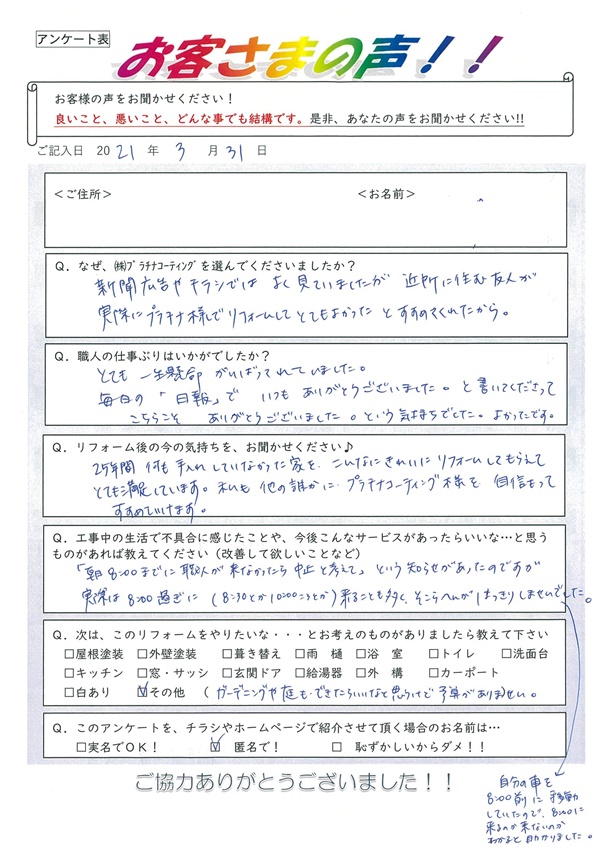 アンケート表
お客さまの声！！
お客様の声をお聞かせください！
良いこと、悪いこと、どんな事でも結構です。是非、あなたの声をお聞かせください!!
ご記入日 2021 年 3 月 31 日
＜ご住所＞ ＜お名前＞
Q．なぜ、㈱プラチナコーティングを選んでくださいましたか？
新聞広告やチラシではよく見ていましたが 近所に住む友人が
実際にプラチナ様でリフォームしてとてもよかったとすすめてくれたから。
Q．職人の仕事ぶりはいかがでしたか？
とても一生懸命がんばってくれていました。
毎日の「日報」で いつもありがとうございました。と書いてくださって
こちらこそ ありがとうございました。という気持ちでした。よかったです。
Q．リフォーム後の今の気持ちを、お聞かせください♪
25年間何も手入れしていなかった家を、こんなにきれいにリフォームしてもらえて
とても満足しています。私も他の誰かにプラチナコーティング様を自信もって
すすめていけます。
Q．工事中の生活で不具合に感じたことや、今後こんなサービスがあったらいいな…と思う
ものがあれば教えてください（改善して欲しいことなど）
「朝8:00までに職人が来なかったら中止と考えて」という知らせがあったのですが
実際は8:00過ぎに（8:30とか10:00のことか）来ることも多く、そこらへんがはっきりしませんでした。
Q．次は、このリフォームをやりたいな・・・とお考えのものがありましたら教えて下さい
□屋根塗装 □外壁塗装 □葺き替え □雨 樋 □浴 室 □トイレ □洗面台
□キッチン □窓・サッシ □玄関ドア □給湯器 □外 構 □カーポート
□白あり ☑その他 （ガーデニングや庭も、できたらいいなと思うけど予算がありません。
Q．このアンケートを、チラシやホームページで紹介させて頂く場合のお名前は…
□実名でOK！ ☑ 匿名で！ □ 恥ずかしいからダメ！！
ご協力ありがとうございました！！
自分の車を
8:00前に移動
していたので、8:00に
来るのか来ないのか
わかると助かりました。